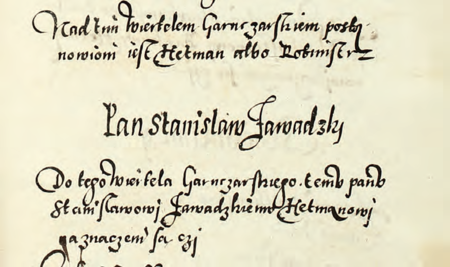 Nad tim wiertelem Garnczarskiem postą-
nowioni iest Hetman albo Rotmistrz
Pan Stanislaw Jawadzki
Do tego wiertela Garnczarskiego. temu panu
Stanislawowi Jawadzkiemu Hetmanowi
naznaczeni są czi